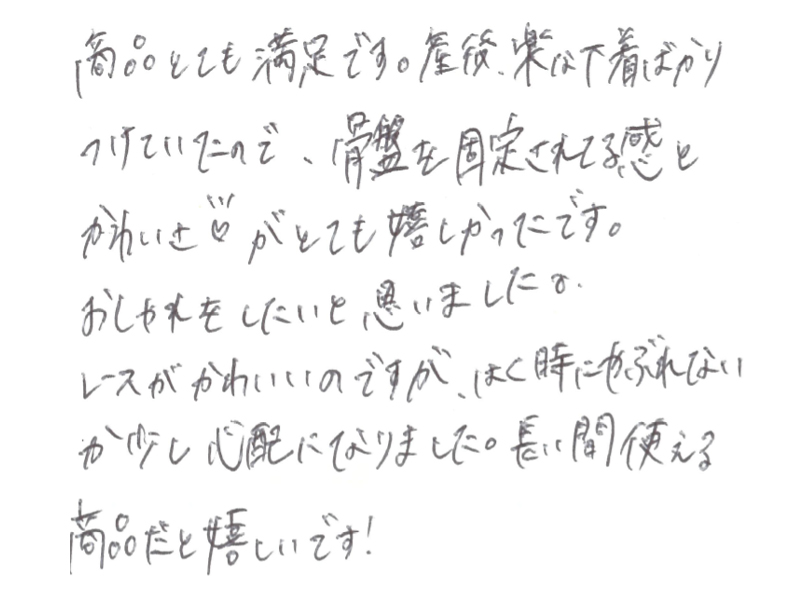 商品とても満足です。産後、楽な下着ばかり
つけていたので、骨盤を固定されてる感と
かわいさ♡がとても嬉しかったです。
おしゃれをしたいと思いました。
レースがかわいいのですが、はく時にやぶれない
か少し心配になりました。長い間使える
商品だと嬉しいです!